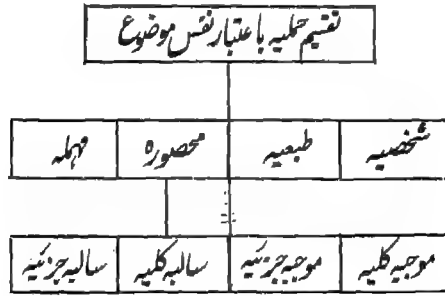 تقسیم حملیہ باعتبار نفس موضوع
شخصیہ طبعیہ محصورہ مہملہ
موجبہ کلیہ موجبہ جزئیہ سالبہ کلیہ سالبہ جزئیہ